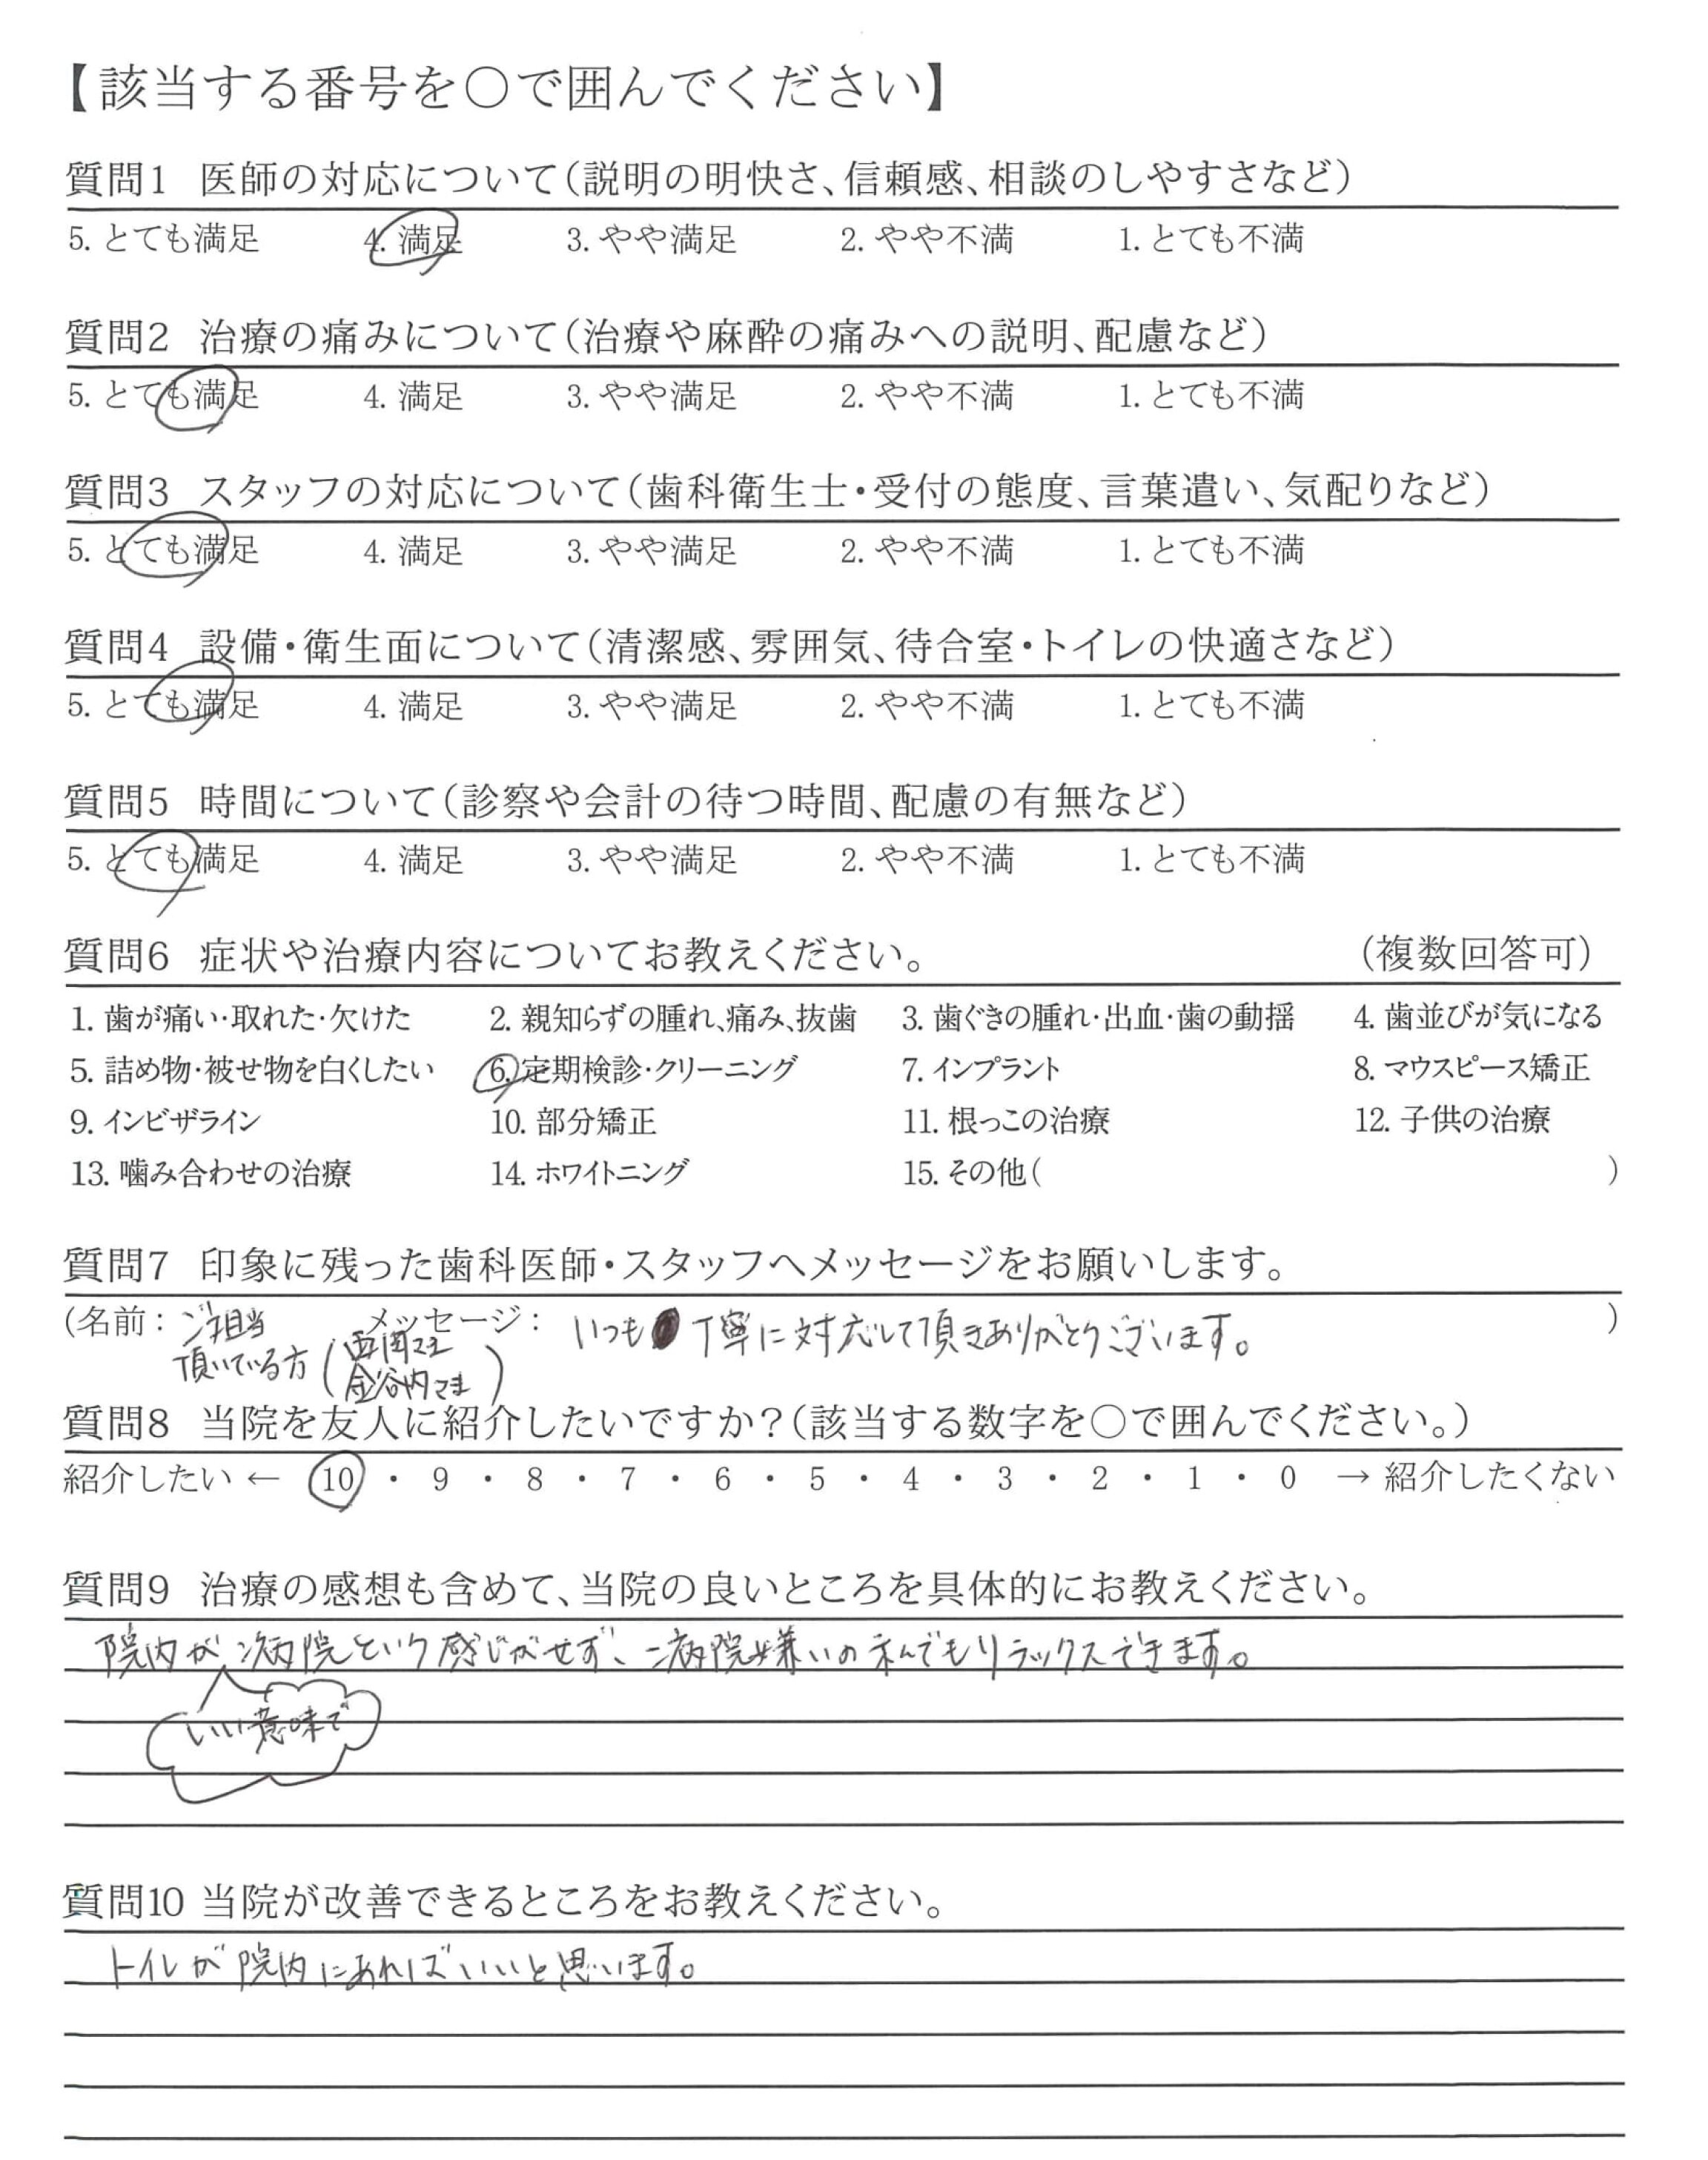 【該当する番号を○で囲んでください】
質問1 医師の対応について(説明の明快さ、信頼感、相談のしやすさなど)
5. とても満足 4. 満足 3. やや満足 2. やや不満 1. とても不満
質問2 治療の痛みについて(治療や麻酔の痛みへの説明、配慮など)
5. とても満足 4. 満足 3. やや満足 2. やや不満 1. とても不満
質問3 スタッフの対応について(歯科衛生士・受付の態度、言葉遣い、気配りなど)
5. とても満足 4. 満足 3. やや満足 2. やや不満 1. とても不満
質問4 設備・衛生面について(清潔感、雰囲気、待合室・トイレの快適さなど)
5. とても満足 4. 満足 3. やや満足 2. やや不満 1. とても不満
質問5 時間について(診察や会計の待つ時間、配慮の有無など)
5. とても満足 4. 満足 3. やや満足 2. やや不満 1. とても不満
質問6 症状や治療内容についてお教えください。 (複数回答可)
1. 歯が痛い・取れた・欠けた 2. 親知らずの腫れ、痛み、抜歯 3. 歯ぐきの腫れ・出血・歯の動揺 4. 歯並びが気になる
5. 詰め物・被せ物を白くしたい 6. 定期検診・クリーニング 7. インプラント 8. マウスピース矯正
9. インビザライン 10. 部分矯正 11. 根っこの治療 12. 子供の治療
13. 噛み合わせの治療 14. ホワイトニング 15. その他( )
質問7 印象に残った歯科医師・スタッフへメッセージをお願いします。
(名前: ご担当 メッセージ: いつも 丁寧に対応して頂きありがとうございます。 )
頂いている方 (西岡さま
金谷内さま)
質問8 当院を友人に紹介したいですか?(該当する数字を○で囲んでください。)
紹介したい ← 10 ・ 9 ・ 8 ・ 7 ・ 6 ・ 5 ・ 4 ・ 3 ・ 2 ・ 1 ・ 0 → 紹介したくない
質問9 治療の感想も含めて、当院の良いところを具体的にお教えください。
院内が、病院という感じがせず、病院嫌いの私でもリラックスできます。
いい意味で
質問10 当院が改善できるところをお教えください。
トイレが院内にあればいいと思います。